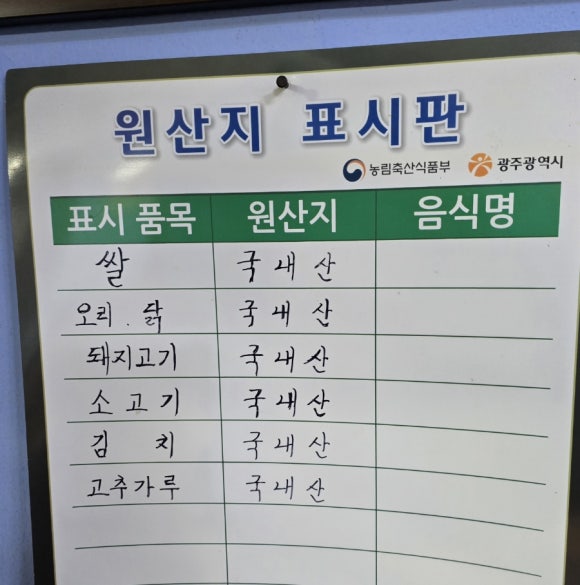 원산지 표시판
농림축산식품부 광주광역시
표시 품목 원산지 음식명
쌀 국내산
오리. 닭 국내산
돼지고기 국내산
소고기 국내산
김치 국내산
고추가루 국내산